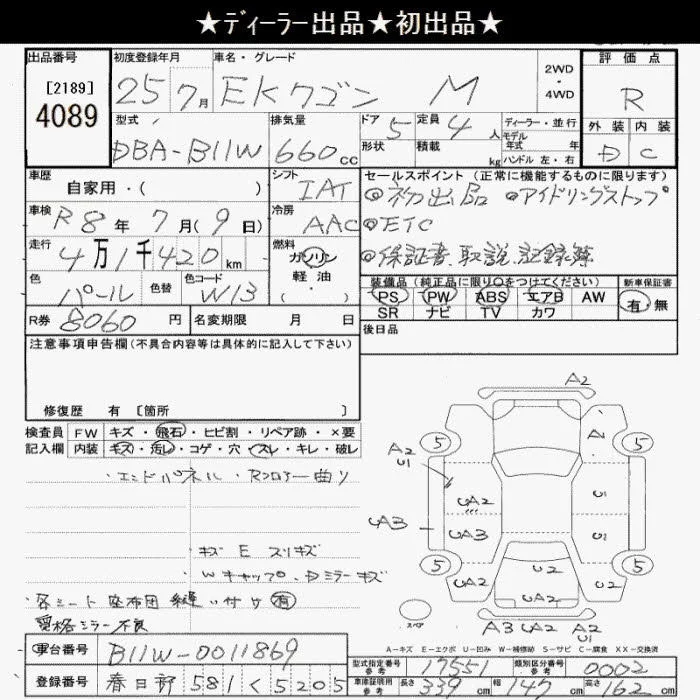 ★ディーラー出品★初出品★
出品番号 初度登録年月 車名・グレード 評価点
[2189]
4089
25 7月 EKワゴン M 2WD・4WD R
型式 排気量 ドア 5 定員 4人 ディーラー・並行 外装 内装
DBA-B11W 660cc 形状 積載 kg モデル年式 年 ハンドル 左・右 D C
車歴 自家用・( ) シフト IAT セールスポイント (正常に機能するものに限ります)
◎初出品 ◎アイドリングストップ
車検 R8年 7月(9日) 冷房 AAC ◎ETC
走行 4万1千420km 燃料 ガソリン 軽油 ◎保証書、取説、記録簿
色 パール 色替 色コード W13 装備品 (純正品に限り○をつけてください) 新車保証書
PS PW ABS エアB AW 有・無
SR ナビ TV カワ
R券 8060円 名変期限 月 日 後日品
注意事項申告欄(不具合内容等は具体的に記入して下さい)
修復歴 有 [箇所 ]
検査員 FW キズ・飛石・ヒビ割・リペア跡・×要
記入欄 内装 キズ・汚レ・コゲ・穴・スレ・キレ・破レ
・エンドパネル・Rフロアー曲り
・キズ E スリキズ
・Wキャップ、Dミラーキズ
・各シート座布団縫い付け有
・電格ミラー不良
A2
5 A 5
A2
U1
UA2 U1
UA3 UA3 U1
5 U2 5
UA2 UA2 U2
スペア
A3 UA2 A2
U2
A－キズ E－エクボ U－凹み W－補修跡 S－サビ C－腐食 XX－交換済
車台番号 B11W-0011869 型式指定番号 参考 17551 類別区分番号 参考 0002
登録番号 春日部 581 く 5205 車庫証明用 参考 長さ 339cm 幅 147cm 高さ 162cm